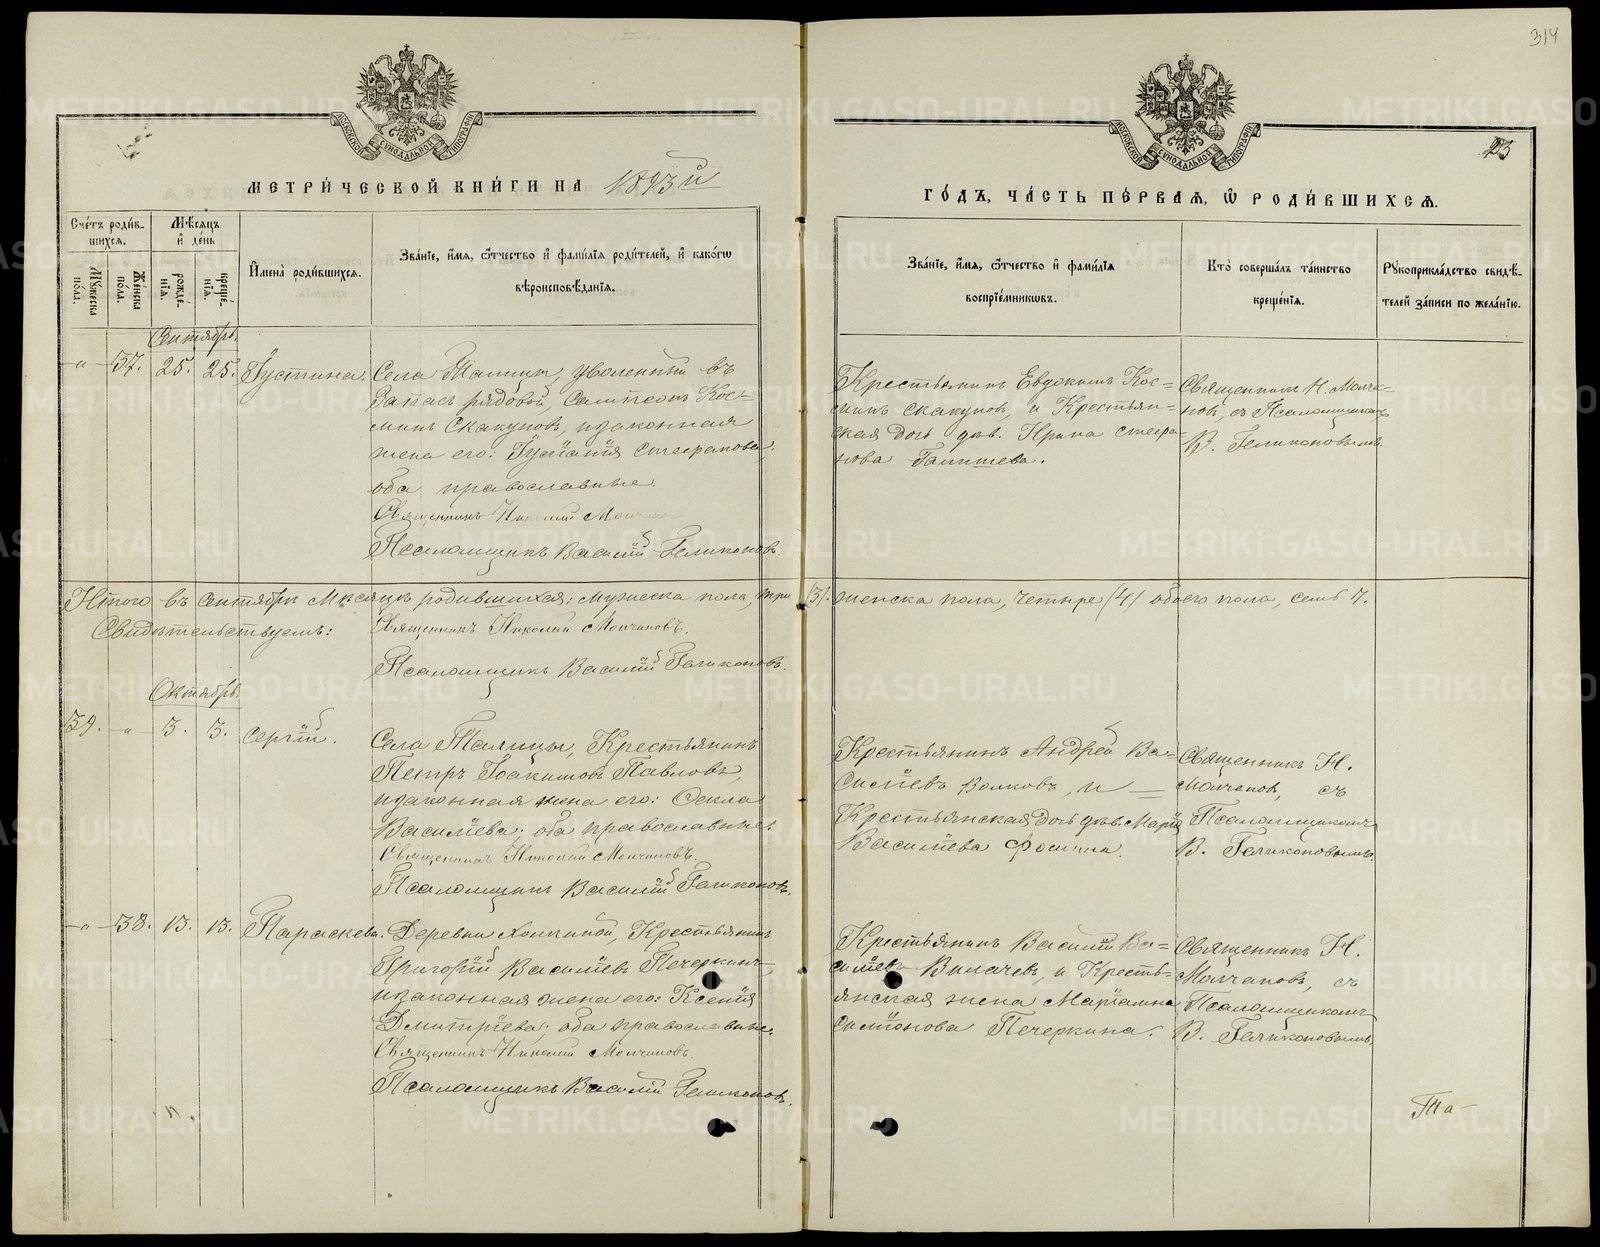 314
МЕТРИ́ЧЕСКОЙ КНИ́ГИ НА 1893й
ГО́ДЪ, ЧА́СТЬ ПЕ́РВАѦ, Ѽ РОДИ́ВШИХСѦ.
Сче́тъ роди́в-
шихсѧ.
Мѣ́сѧцъ
и҆ де́нь
Мꙋ́жеска по́ла.
Же́нска по́ла.
рожде́-
нїѧ.
креще́-
нїѧ.
И҆мена̀ роди́вшихсѧ.
Зва́нїе, и҆́мѧ, ѻ҆́тчество и҆ фами́лїѧ роди́телей, и҆ како́гѡ
вѣроисповѣ́данїѧ.
Зва́нїе, и҆́мѧ, ѻ҆́тчество и҆ фами́лїѧ
воспрїе́мникѡвъ.
Кто̀ соверша́лъ та́инство
креще́нїѧ.
Рꙋкоприкла́дство свидѣ́-
телей за́писи по жела́нїю.
Сентябрь.
„ 37. 25. 25. Іустина.
Села Талицы, уволенный въ
запасъ рядовой, Сампсонъ Кос-
минъ Скакуновъ, и законная
жена его: Іуліанія Стефанова;
оба православные.
Священникъ Николай Молчановъ
Псаломщикъ Василій Геликоновъ.
Крестьянинъ Евдокимъ Кос-
минъ Скакуновъ, и Крестьян-
ская дочь дѣв. Ирина Стефа-
нова
Священникъ Н. Молча-
новъ, съ Псаломщикомъ
В. Геликоновымъ.
Итого въ Сентябрѣ Мѣсяцѣ родившихся: мужеска пола, три (3). женска пола, четыре (4) обоего пола, семь 7.
Свидѣтельствуемъ: Священникъ Николай Молчановъ.
Псаломщикъ Василій Геликоновъ.
Октябрь.
39. „ 3. 3. Сергій.
Села Талицы, Крестьянинъ
Петръ Іоакимовъ Павловъ,
и законная жена его: Ѳекла
Васильева; оба православные.
Священникъ Николай Молчановъ.
Псаломщикъ Василій Геликоновъ.
Крестьянинъ Андрей Ва-
сильевъ Волковъ, и
Крестьянская дочь дѣв. Марія
Васильева Фомина.
Священникъ Н.
Молчановъ, съ
Псаломщикомъ
В. Геликоновымъ.
„ 38. 13. 13. Параскева.
Деревни Холкиной, Крестьянинъ
Григорій Васильевъ Печеркинъ,
и законная жена его: Ксенія
Димитріева; оба православные.
Священникъ Николай Молчановъ.
Псаломщикъ Василій Геликоновъ.
Крестьянинъ Василій Ва-
сильевъ и Кресть-
янская жена Маріамна
Симіонова Печеркина.
Священникъ Н.
Молчановъ, съ
Псаломщикомъ
В. Геликоновымъ.
Та-
METRIKI.GASO-URAL.RU